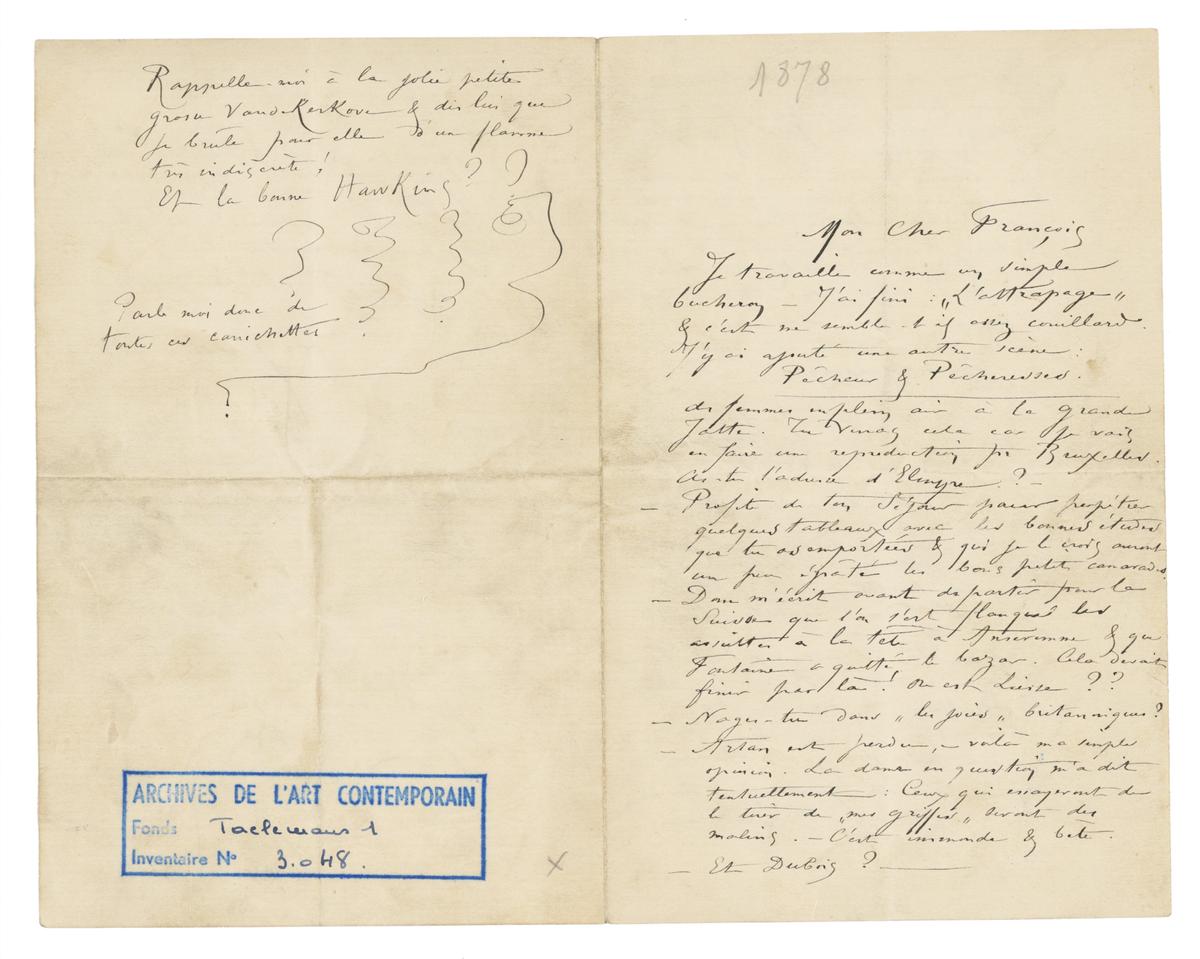 1878
Mon Cher François
Je travaille comme un simple
bucheron – J'ai fini : „L'attrapage"
& c'est me semble-t-il assez couillard.
J'y ai ajouté une autre scène :
Pêcheur & Pêcheresses.
de femmes en plein air à la Grande
Jatte. Tu verras cela car je vais
en faire une reproduction pr Bruxelles.
As-tu l'adresse d'Elmyre ? –
– Profite de ton Séjour pour perpétrer
quelques tableaux avec les bonnes études
que tu as emportées & qui je le crois auront
un peu épaté les bons petits camarades.
– Dom m'écrit avant de partir pour la
Suisse que l'on s'est flanqué les
assiettes à la tête à Anseremme & que
Fontaine a quitté le bazar. Cela devait
finir par là ! Où est Liesse ??
– Nages-tu dans „les joies" britanniques ?
– Artan est perdu, – voilà ma simple
opinion. La dame en question m'a dit
textuellement : Ceux qui essayeront de
le tirer de „mes griffes" seront des
malins. – C'est immonde & bête.
– Et Dubois ? –
Rappelle-moi à la jolie petite
grosse Vanderkerkove & dis lui que
je brule pour elle d'un flamme
très indiscrète !
Et la bonne Hawking ? ?
? ? ? ?
Parle moi donc de
toutes ces
?
ARCHIVES DE L'ART CONTEMPORAIN
Fonds Taelemans 1
Inventaire N° 3.048.
X